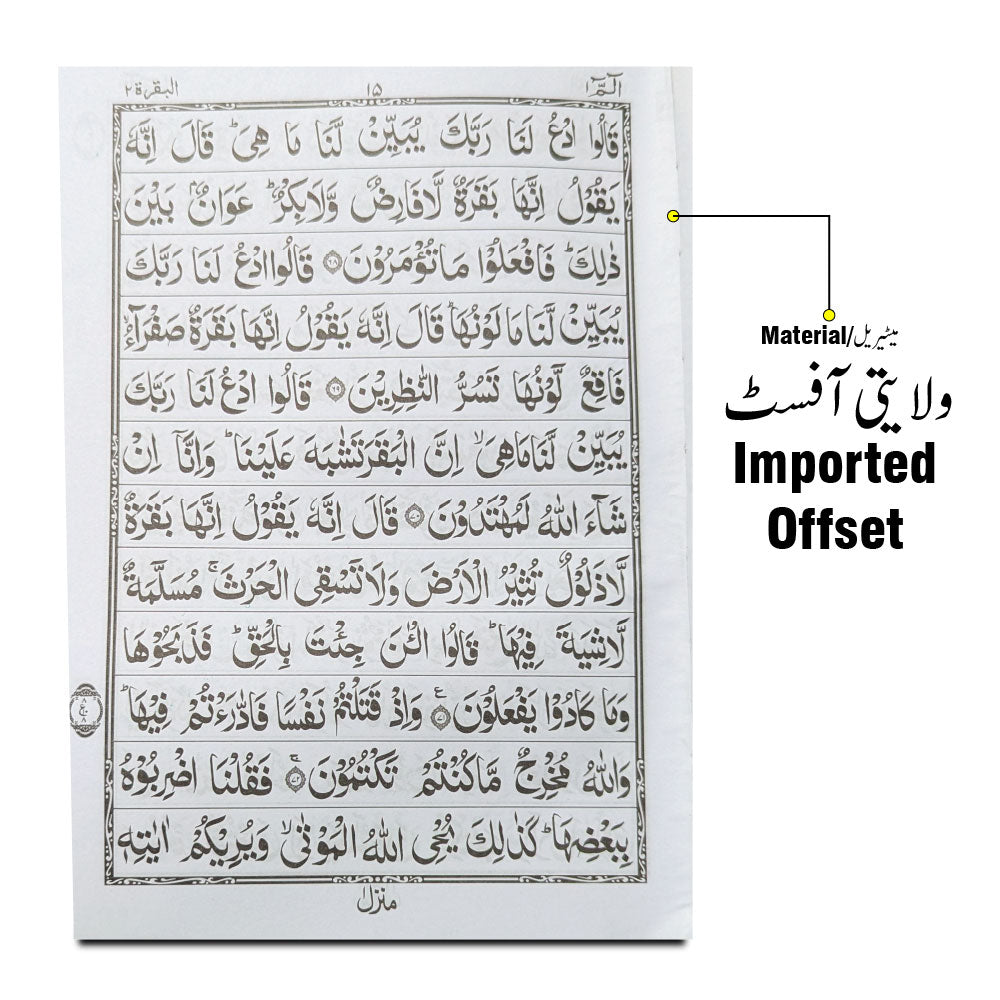 الٓمّٓ ۱ ۱۵ البقرة ۲
قَالُوا ادْعُ لَنَا رَبَّكَ یُبَیِّنْ لَّنَا مَا هِیَ ؕ قَالَ اِنَّهٗ
یَقُوْلُ اِنَّهَا بَقَرَةٌ لَّا فَارِضٌ وَّلَا بِكْرٌ ؕ عَوَانٌۢ بَیْنَ
ذٰلِكَ ؕ فَافْعَلُوْا مَا تُؤْمَرُوْنَ ۶۸ قَالُوا ادْعُ لَنَا رَبَّكَ
یُبَیِّنْ لَّنَا مَا لَوْنُهَا ؕ قَالَ اِنَّهٗ یَقُوْلُ اِنَّهَا بَقَرَةٌ صَفْرَآءُ
فَاقِعٌ لَّوْنُهَا تَسُرُّ النّٰظِرِیْنَ ۶۹ قَالُوا ادْعُ لَنَا رَبَّكَ
یُبَیِّنْ لَّنَا مَا هِیَ ۙ اِنَّ الْبَقَرَ تَشٰبَهَ عَلَیْنَا ؕ وَاِنَّاۤ اِنْ
شَآءَ اللّٰهُ لَمُهْتَدُوْنَ ۷۰ قَالَ اِنَّهٗ یَقُوْلُ اِنَّهَا بَقَرَةٌ
لَّا ذَلُوْلٌ تُثِیْرُ الْاَرْضَ وَلَا تَسْقِی الْحَرْثَ ۚ مُسَلَّمَةٌ
لَّا شِیَةَ فِیْهَا ؕ قَالُوا الْـٰٔنَ جِئْتَ بِالْحَقِّ ؕ فَذَبَحُوْهَا
وَمَا كَادُوْا یَفْعَلُوْنَ ۷۱ ع وَاِذْ قَتَلْتُمْ نَفْسًا فَادّٰرَءْتُمْ فِیْهَا ؕ
وَاللّٰهُ مُخْرِجٌ مَّا كُنْتُمْ تَكْتُمُوْنَ ۷۲ ۚ فَقُلْنَا اضْرِبُوْهُ
بِبَعْضِهَا ؕ كَذٰلِكَ یُحْیِ اللّٰهُ الْمَوْتٰی ۙ وَیُرِیْكُمْ اٰیٰتِهٖ
منزل ۱
Material/میٹیریل
ولایتی آفسٹ
Imported
Offset